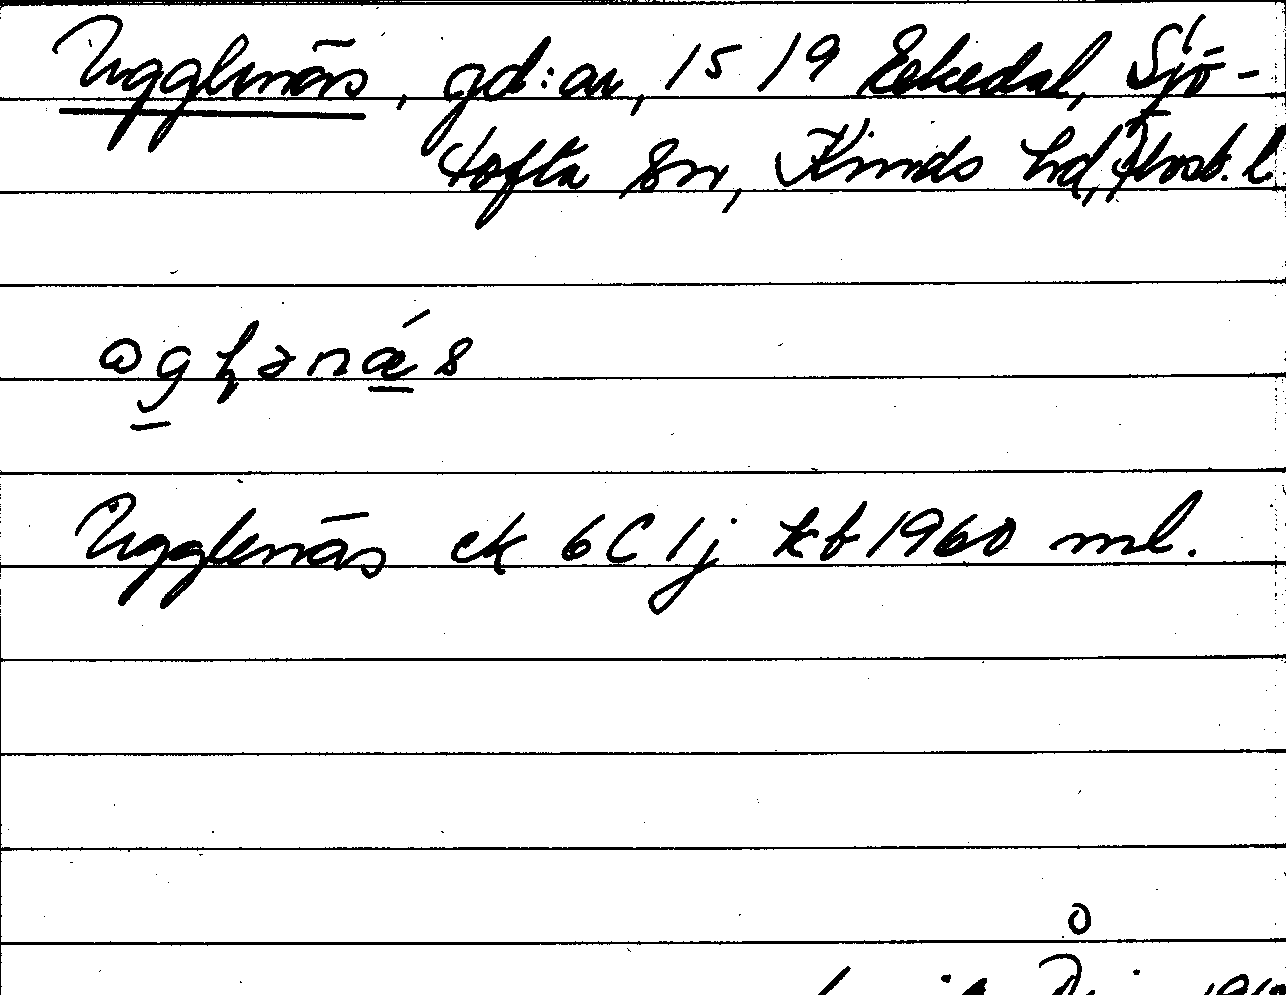 Ugglenäs, gd:ar, 15 19 Ekedal, Sjö-
tofta sn, Kinds hd, Älvsb. l.
Ugglenäs ek 6C 1j kb 1960 ml.